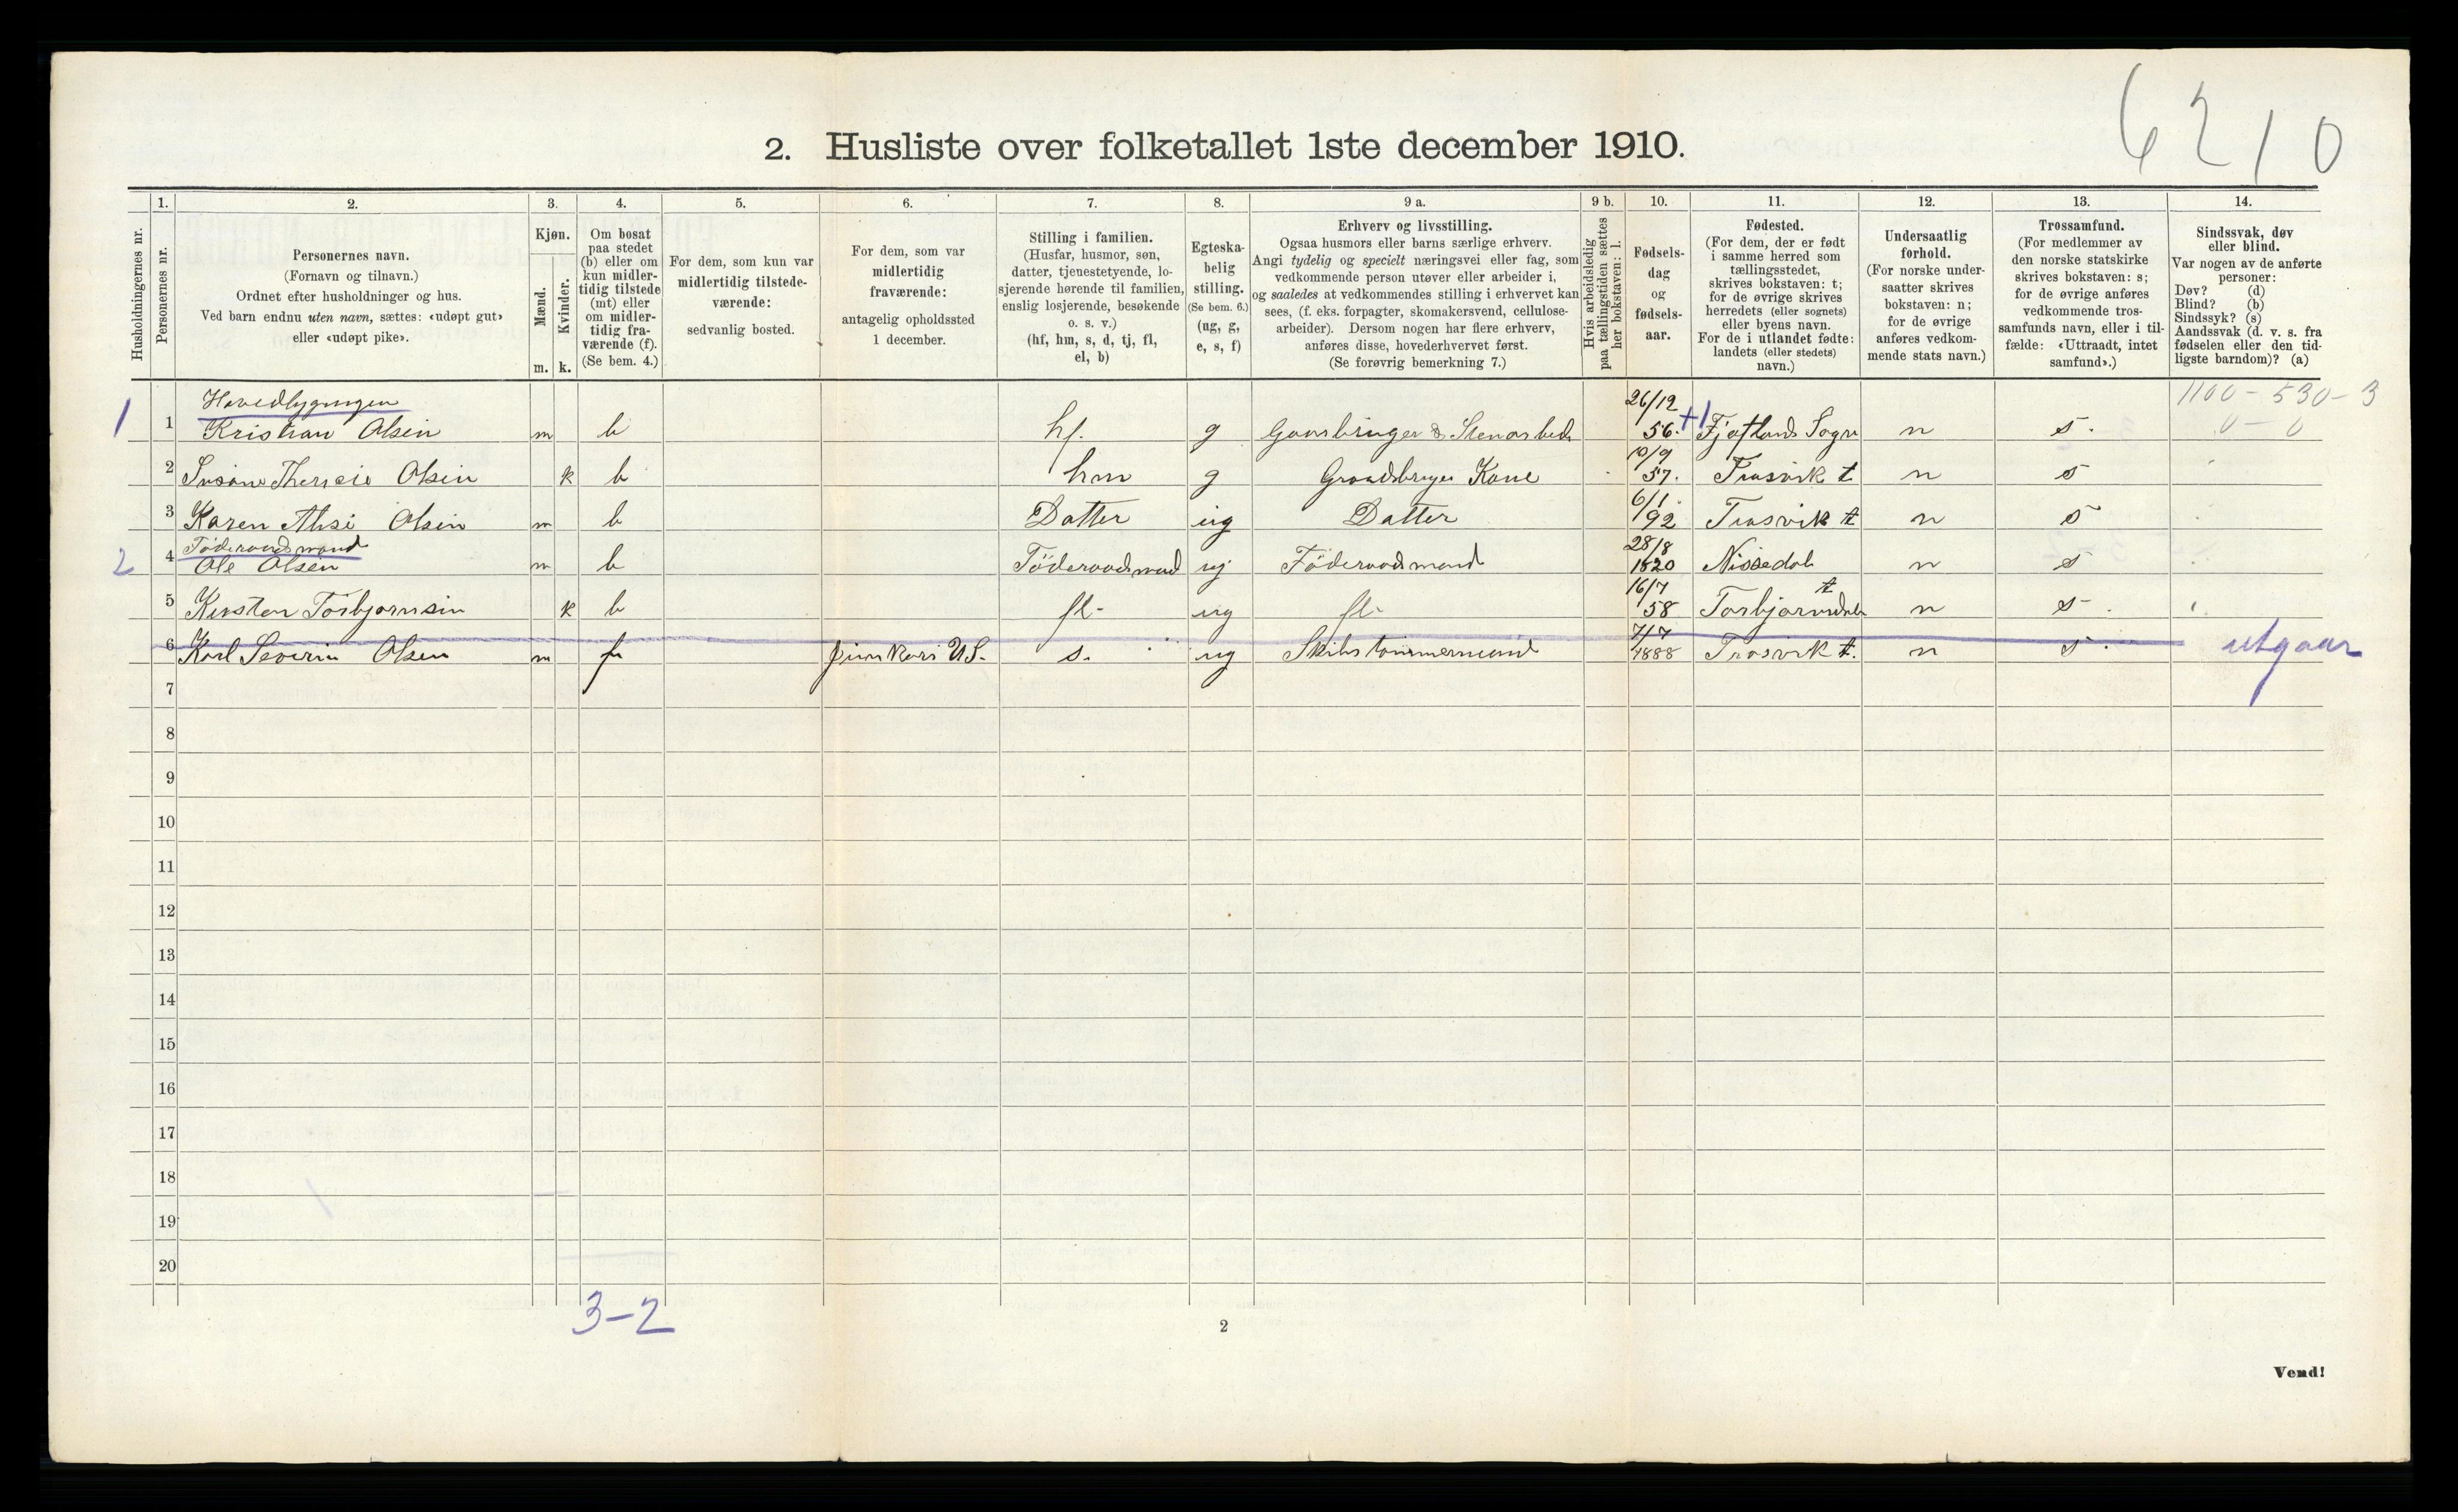 6210
2. Husliste over folketallet 1ste december 1910.
Husholdningernes nr.
1.
Personernes nr.
2.
Personernes navn.
(Fornavn og tilnavn.)
Ordnet efter husholdninger og hus.
Ved barn endnu uten navn, sættes: «udøpt gut»
eller «udøpt pike».
3.
Kjøn.
Mænd.
Kvinder.
m. k.
4.
Om bosat
paa stedet
(b) eller om
kun midler-
tidig tilstede
(mt) eller
om midler-
tidig fra-
værende (f).
(Se bem. 4.)
5.
For dem, som kun var
midlertidig tilstede-
værende:
sedvanlig bosted.
6.
For dem, som var
midlertidig
fraværende:
antagelig opholdssted
1 december.
7.
Stilling i familien.
(Husfar, husmor, søn,
datter, tjenestetyende, lo-
sjerende hørende til familien,
enslig losjerende, besøkende
o. s. v.)
(hf, hm, s, d, tj, fl,
el, b)
8.
Egteska-
belig
stilling.
(Se bem. 6.)
(ug, g,
e, s, f)
9 a.
Erhverv og livsstilling.
Ogsaa husmors eller barns særlige erhverv.
Angi tydelig og specielt næringsvei eller fag, som
vedkommende person utøver eller arbeider i,
og saaledes at vedkommendes stilling i erhvervet kan
sees, (f. eks. forpagter, skomakersvend, cellulose-
arbeider). Dersom nogen har flere erhverv,
anføres disse, hovederhvervet først.
(Se forøvrig bemerkning 7.)
9 b.
Hvis arbeidsledig
paa tællingstiden sættes
her bokstaven: l.
10.
Fødsels-
dag
og
fødsels-
aar.
11.
Fødested.
(For dem, der er født
i samme herred som
tællingsstedet,
skrives bokstaven: t;
for de øvrige skrives
herredets (eller sognets)
eller byens navn.
For de i utlandet fødte:
landets (eller stedets)
navn.)
12.
Undersaatlig
forhold.
(For norske under-
saatter skrives
bokstaven: n;
for de øvrige
anføres vedkom-
mende stats navn.)
13.
Trossamfund.
(For medlemmer av
den norske statskirke
skrives bokstaven: s;
for de øvrige anføres
vedkommende tros-
samfunds navn, eller i til-
fælde: «Uttraadt, intet
samfund».)
14.
Sindssvak, døv
eller blind.
Var nogen av de anførte
personer:
Døv? (d)
Blind? (b)
Sindssyk? (s)
Aandssvak (d. v. s. fra
fødselen eller den tid-
ligste barndom)? (a)
1100 - 530 - 3
0 - 0
Hovedbygningen
1 1 Kristian Olsen m b hf. g Gaardbruger & Stenarbeide 26/12 56. +1 Fjotland Sogn n s.
2 Therecie Olsen k b hm g Kone 10/9 57. t n s
3 Karen Olsen m b Datter ug Datter 6/1 92 t n s
Föderaadsmand
2 4 Ole Olsen m b Föderaadsmand ug Föderaadsmand 28/8 1820 Nissedal n s
5 Torbjornsen k b fl- ug fl- 16/7 58 t n s
6 Karl Severin Olsen m f U.S. s. ug Skibstømmermand 7/7 1888 t. n s utgaar
7
8
9
10
11
12
13
14
15
16
17
18
19
20
3-2
2
Vend!